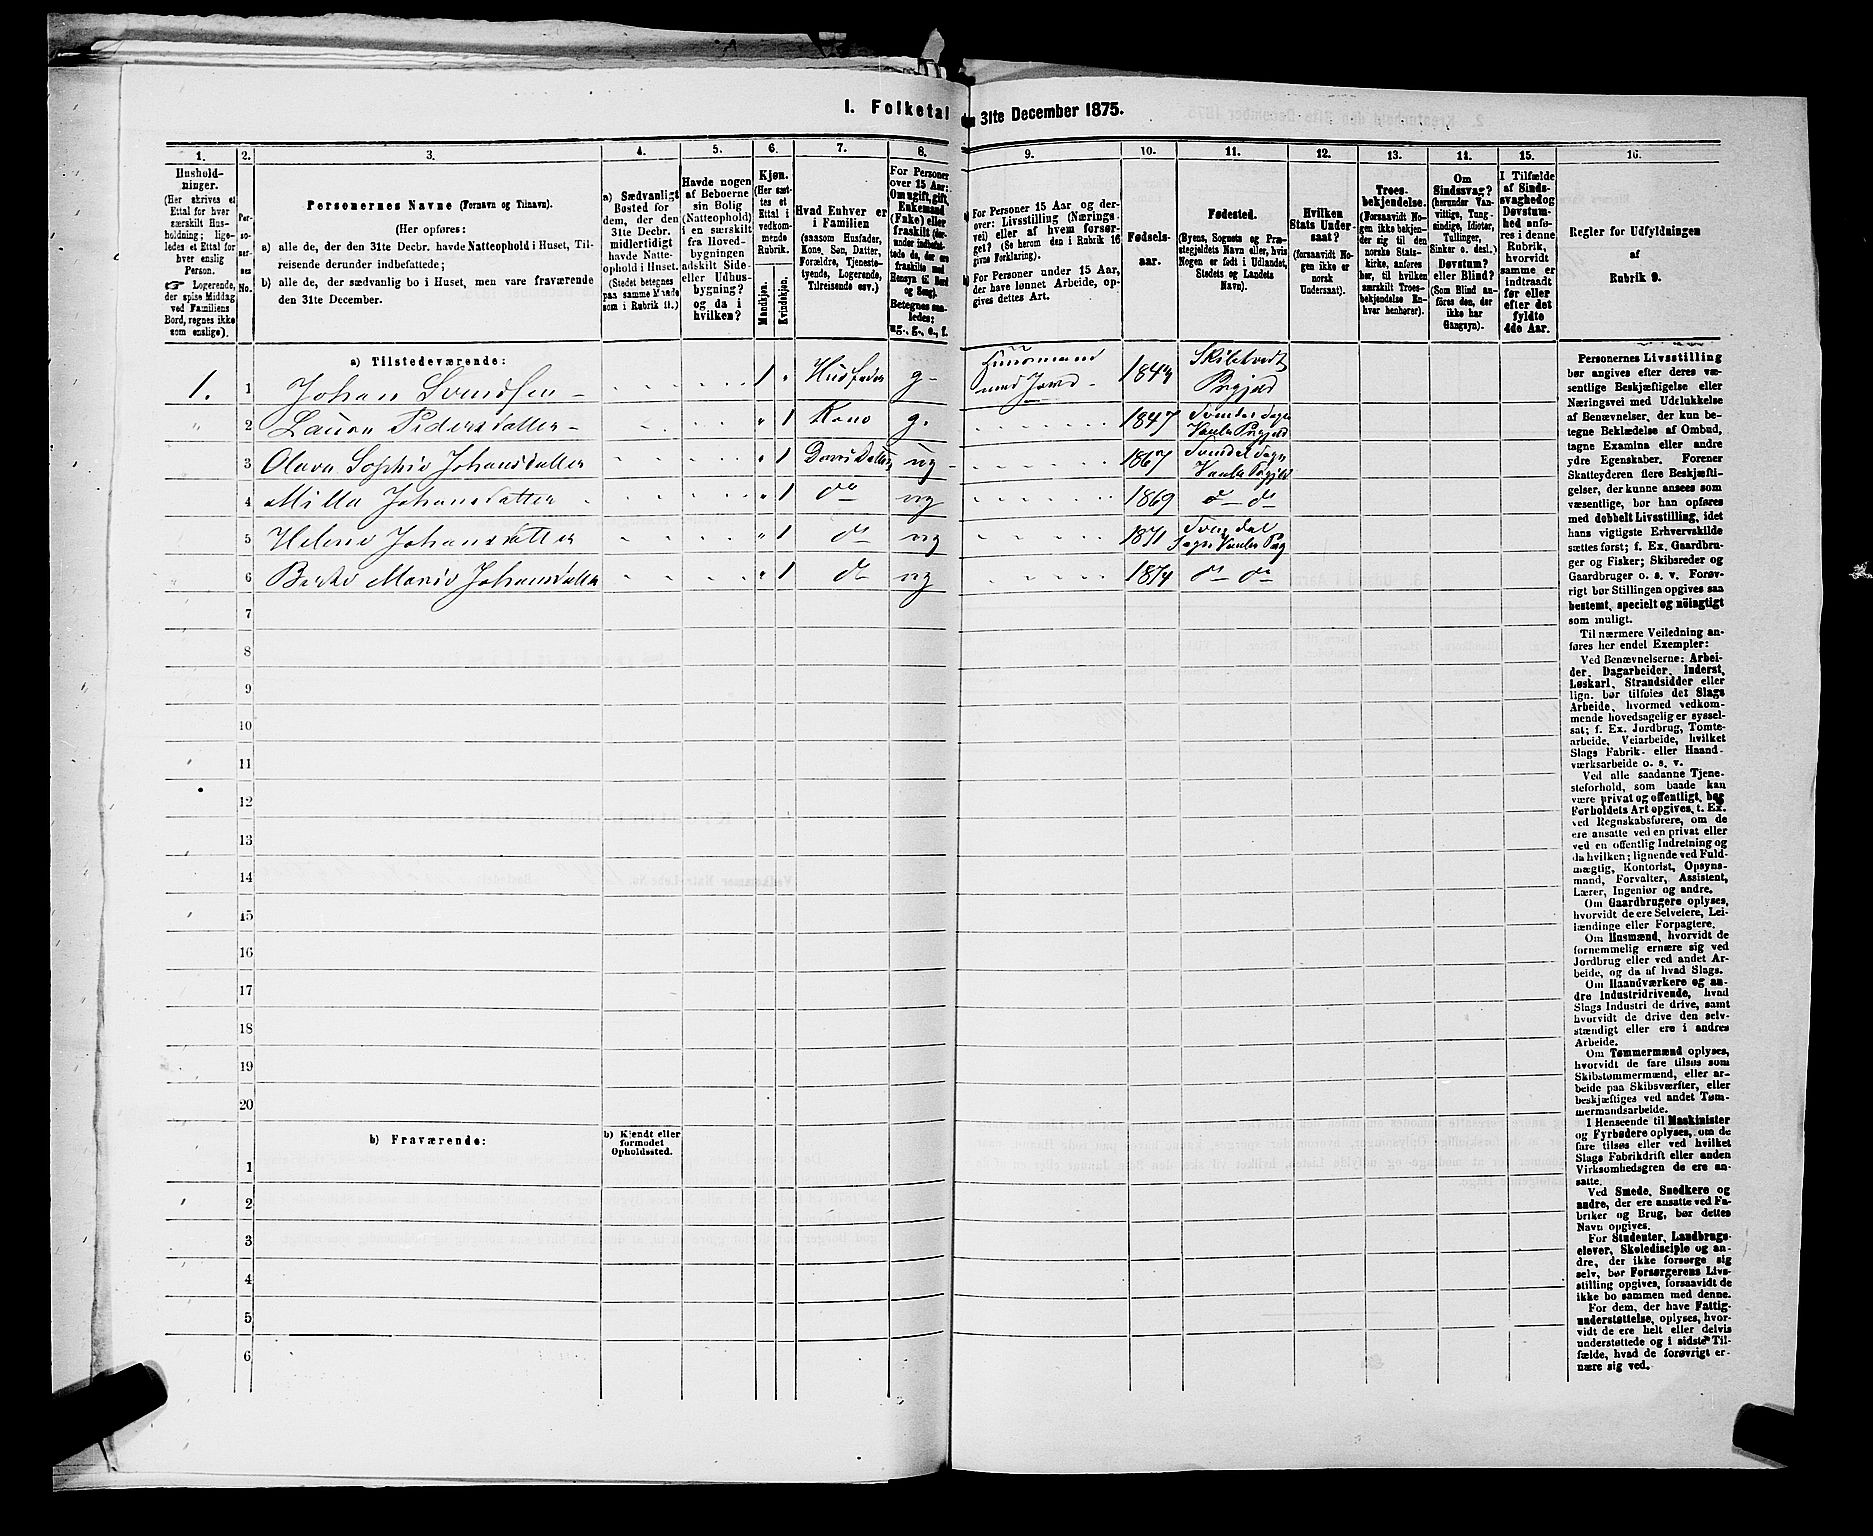 1. Folketal
den 31te December 1875.
1. 2. 3. 4. 5. 6. 7. 8. 9. 10. 11. 12. 13. 14. 15. 16.
Hushold-
ninger.
(Her skrives et
Ettal for hver
særskilt Hus-
holdning; lige-
ledes et Ettal for
hver enslig
Person.
☞ Logerende,
der spise Middag
ved Familiens
Bord, regnes ikke
som enslige).
Per-
so-
ner-
nes
No.
Personernes Navne (Fornavn og Tilnavn).
(Her opføres:
a) alle de, der den 31te Decbr. havde Natteophold i Huset, Til-
reisende derunder indbefattede;
b) alle de, der sædvanlig bo i Huset, men vare fraværende
den 31te December.
a) Sædvanligt
Bosted for
dem, der den
31te Decbr.
midlertidigt
havde Natte-
ophold i Huset.
(Stedet betegnes
paa samme Maade
som i Rubrik 11.)
Havde nogen
af Beboerne
sin Bolig
(Natteophold)
i en særskilt
fra Hoved-
bygningen
adskilt Side-
eller Udhus-
bygning?
og da i
hvilken?
Kjøn.
(Her sæt-
tes et
Ettal i
vedkom-
mende
Rubrik.
Mandkjøn.
Kvindekjøn.
Hvad Enhver er
i Familien
(saasom Husfader,
Kone, Søn, Datter,
Forældre, Tjeneste-
tyende, Logerende,
Tilreisende osv.)
For Personer
over 15 Aar:
Om ugift, gift,
Enkemand
(Enke) eller
fraskilt (der-
under indbefat-
tede de, der ere
fraskilte med
Hensyn til Bord
og Seng).
Betegnes saa-
ledes:
ug., g., e., f.
a) For Personer 15 Aar og der-
over: Livsstilling (Nærings-
vei) eller af hvem forsør-
get? (Se herom den i Rubrik 16
givne Forklaring).
b) For Personer under 15 Aar,
der have lønnet Arbeide, op-
gives dettes Art.
Fødsels-
aar.
Fødested.
(Byens, Sognets og Præ-
stegjeldets Navn eller, hvis
Nogen er født i Udlandet,
Stedets og Landets
Navn).
Hvilken
Stats Under-
saat?
(forsaavidt No-
gen ikke er
norsk
Undersaat).
Troes-
bekjendelse.
(Forsaavidt No-
gen ikke bekjen-
der sig til den
norske Stats-
kirke, anføres
her, til hvilken
særskilt Troes-
bekjendelse En-
hver henhører).
Om
Sindssvag?
(herunder Van-
vittige, Tung-
sindige, Idioter,
Tullinger,
Sinker o. desl.)
Døvstum?
eller Blind?
(Som Blind an-
føres den, der
ikke har
Gangsyn).
I Tilfælde
af Sinds-
svaghed og
Døvstum-
hed anfø-
res i denne
Rubrik,
hvorvidt
samme er
indtraadt
før eller
efter det
fyldte
4de Aar.
Regler for Udfyldningen
af
Rubrik 9.
a) Tilstedeværende:
1. 1 Johan Svendsen 1 Husfader g. Husmand med Jord 1843 Skibtvedt Prgjeld
2 Laura Pedersdatter 1 Kone g. 1847 Svindal Sogn Vaaler Prgjeld
3 Olava Sophie Johansdatter 1 Datter ug 1867 Svindal Sogn Vaaler Prgjeld
4 Milla Johansdatter 1 do ug 1869 do do
5 Helene Johansdatter 1 do ug 1871 Svindal Sogn Vaaler Prg
6 Berthe Marie Johansdatter 1 do ug 1874 do do
7
8
9
10
11
12
13
14
15
16
17
18
19
20
b) Fraværende:
b) Kjendt eller
formodet
Opholdssted.
1
2
3
4
5
6
Personernes Livsstilling
bør angives efter deres væ-
sentlige Beskjæftigelse eller
Næringsvei med Udelukkelse
af Benævnelser, der kun be-
tegne Beklædelse af Ombud,
tagne Examina eller andre
ydre Egenskaber. Forener
Skatteyderen flere Beskjæfti-
gelser, der kunne ansees som
væsentlige, bør han opføres
med dobbelt Livsstilling, idet
hans vigtigste Erhvervskilde
sættes først; f. Ex. Gaardbru-
ger og Fisker; Skibsreder og
Gaardbruger o. s. v. Forøv-
rigt bør Stillingen opgives saa
bestemt, specielt og nöiagtigt
som muligt.
Til nærmere Veiledning an-
føres her endel Exempler:
Ved Benævnelserne: Arbei-
der, Dagarbeider, Inderst,
Løskarl, Strandsidder eller
lign. bør tilføies det Slags
Arbeide, hvormed vedkom-
mende hovedsagelig er syssel-
sat; f. Ex. Jordbrug, Tomte-
arbeide, Veiarbeide, hvilket
Slags Fabrik- eller Haand-
værksarbeide o. s. v.
Ved alle saadanne Tjene-
steforhold, som baade kan
være privat og offentligt, bør
Forholdets Art opgives, t. Ex.
ved Regnskabsførere, om de
ere ansatte ved en privat eller
ved en offentlig Indretning og
da hvilken; lignende ved Fuld-
mægtig, Kontorist, Opsyns-
mand, Forvalter, Assistent,
Lærer, Ingeniør og andre.
Om Gaardbrugere oplyses,
hvorvidt de ere Selveiere, Lei-
lændinge eller Forpagtere.
Om Husmænd, hvorvidt de
fornemmelig ernære sig ved
Jordbrug eller ved andet Ar-
beide, og da af hvad Slags.
Om Haandværkere og an-
dre Industridrivende, hvad
Slags Industri de drive, samt
hvorvidt de drive den selv-
stændigt eller ere i andres
Arbeide.
Om Tømmermænd oplyses,
hvorvidt de fare tilsøs som
Skibstømmermænd, eller ar-
beide paa Skibsværfter, eller
beskjæftiges ved andet Tøm-
mermandsarbeide.
I Henseende til Maskinister
og Fyrbødere oplyses, om de
fare tilsøs eller ved hvilket
Slags Fabrikdrift eller anden
Virksomhedsgren de ere an-
satte.
Ved Smede, Snedkere og
andre, der ere ansatte ved Fa-
briker og Brug, bør dettes
Navn opgives.
For Studenter, Landbrugs-
elever, Skoledisciple og an-
dre, der ikke forsørge sig
selv, bør Forsørgerens Livs-
stilling opgives, forsaavidt de
ikke bo sammen med denne.
For dem, der have Fattig-
understøttelse, oplyses, hvor-
vidt de ere helt eller delvis
understøttede og i sidste Til-
fælde, hvad de forøvrigt er-
nære sig ved.